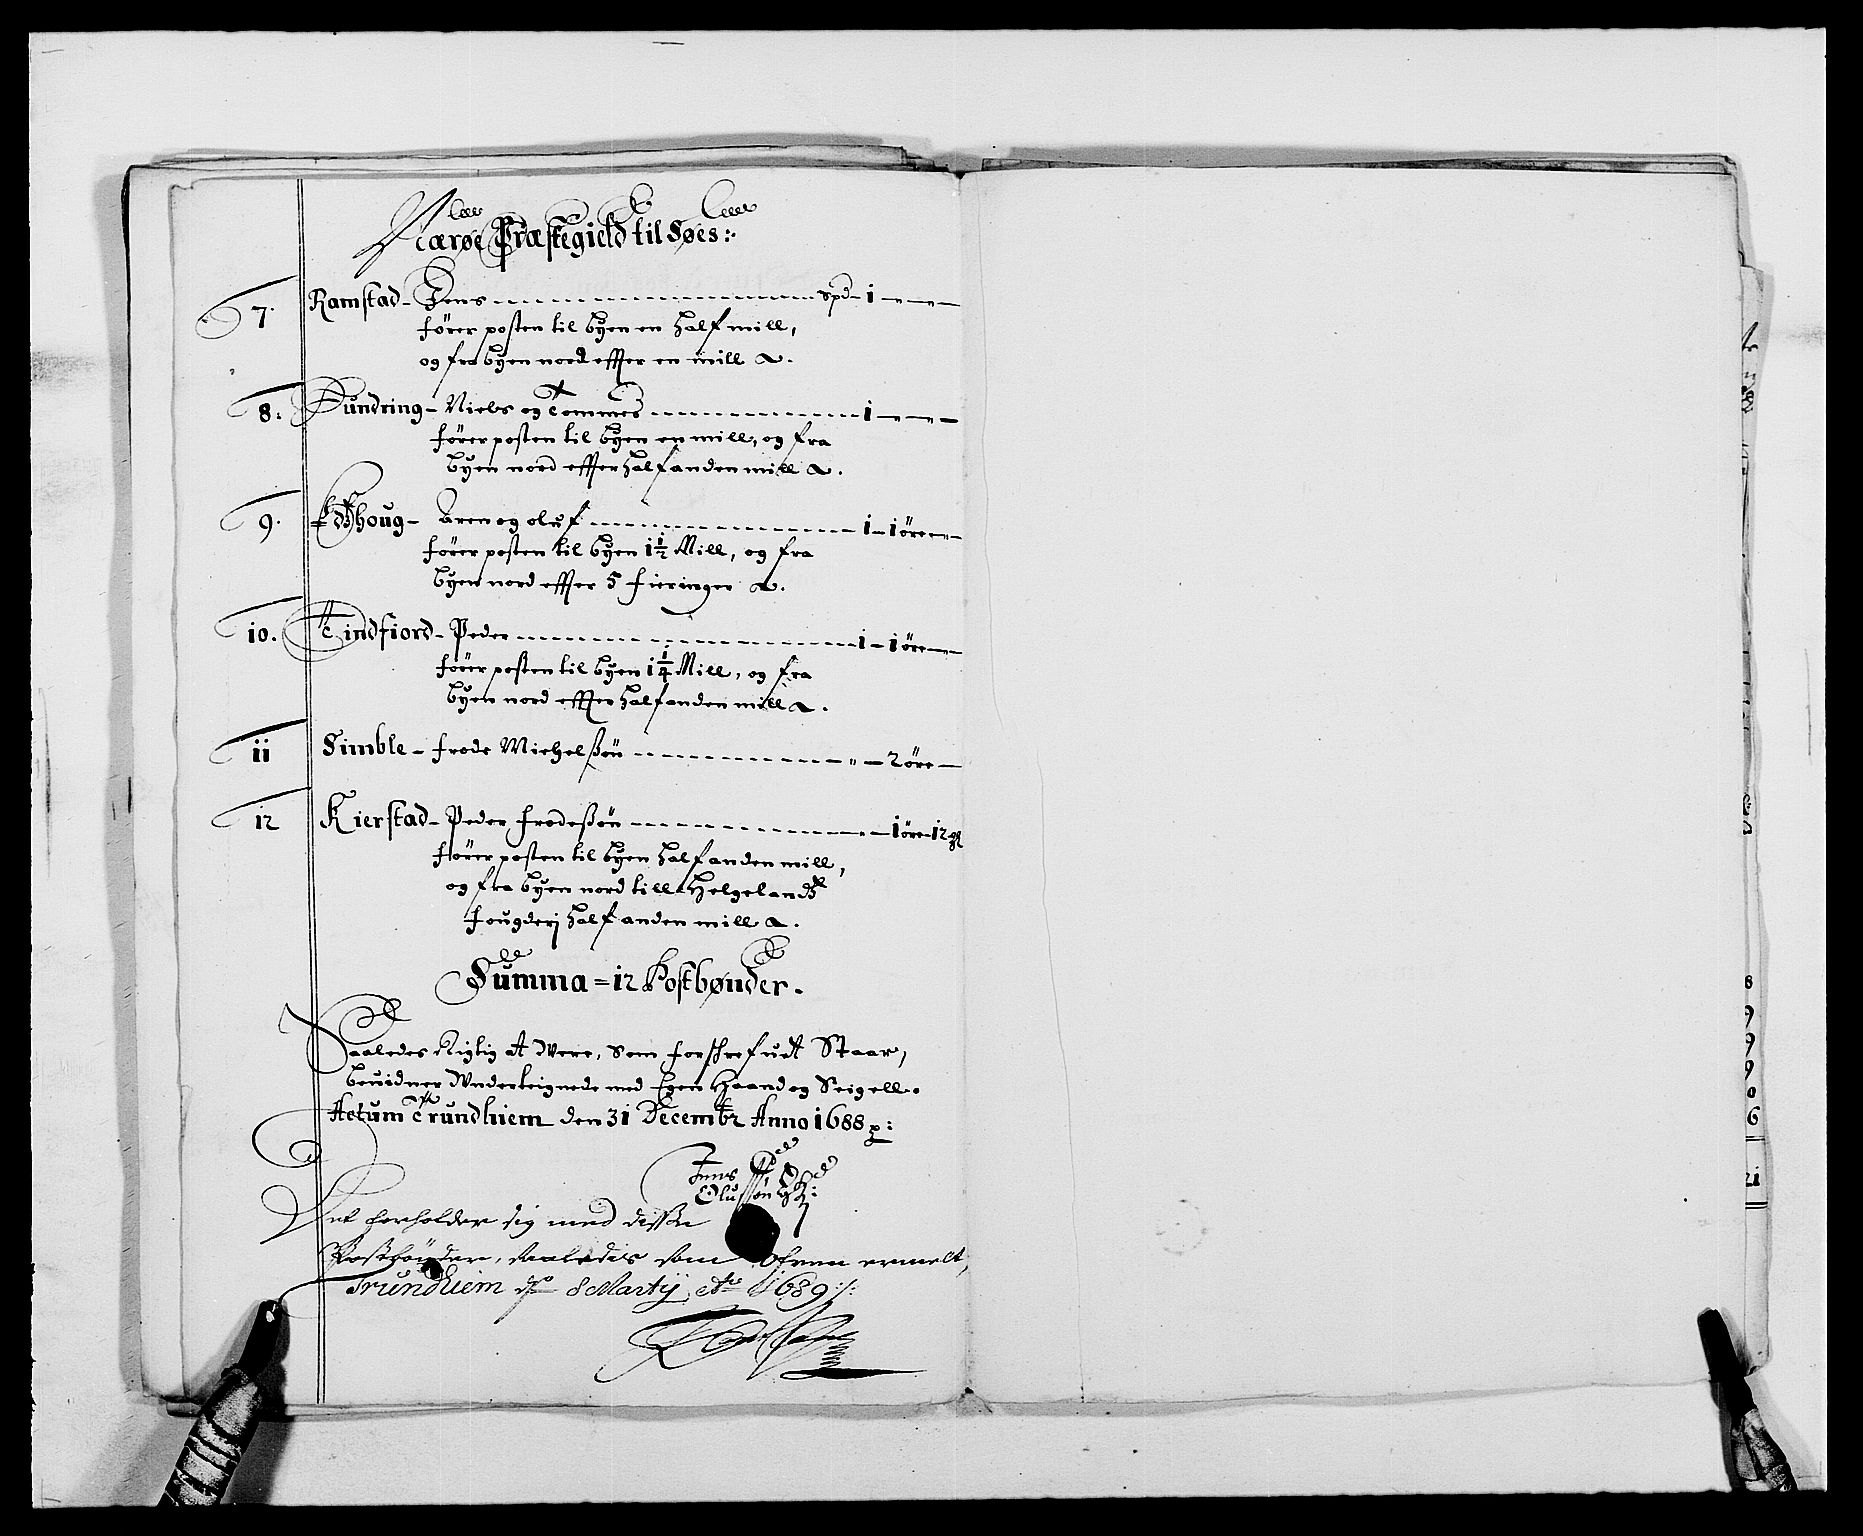 Nærøe Præstegield til Søes:
7. Ramstad - Jens - - - spd - 1 - " - " -
fører posten til byen en half mill,
og fra byen nord effter en mill
8: Dundring - Niels og Tommes - - - 1 - " - " -
fører posten til byen en mill, og fra
byen nord effter half anden mill
9. houg - Aren og oluf - - - 1 - 1 öre - " -
fører posten til byen 1 1/2 Mill, og fra
byen nord effter 5 fieringer
10. Tindfiord - Peder - - - 1 - 1 öre - " -
fører posten til byen 1 1/4 Mill, og fra
byen nord effter half anden mill
11 Simble - frode Michelßøn - - - " - 2 öre -
12 Kierstad - Peder frodeßøn - - - " - 1 öre - 12
fører posten til byen half anden mill,
og fra byen nord till Helgelands
fougderj half anden mill
Summa = 12 Postbønder.
Saaledes Rigtig at Were, Som forschrefudt Staar,
beuidner Vnderteignede med Egen Haand og Seigell.
Actum Trundhiem den 31 Decembr Anno 1688
Jens
Olufßøn
Det forholder sig med disse
Postbønder, saaledis som ofven ermelt,
Trundhiem d 8 Martij Ao 1689
8
9
9
9
0
6
21